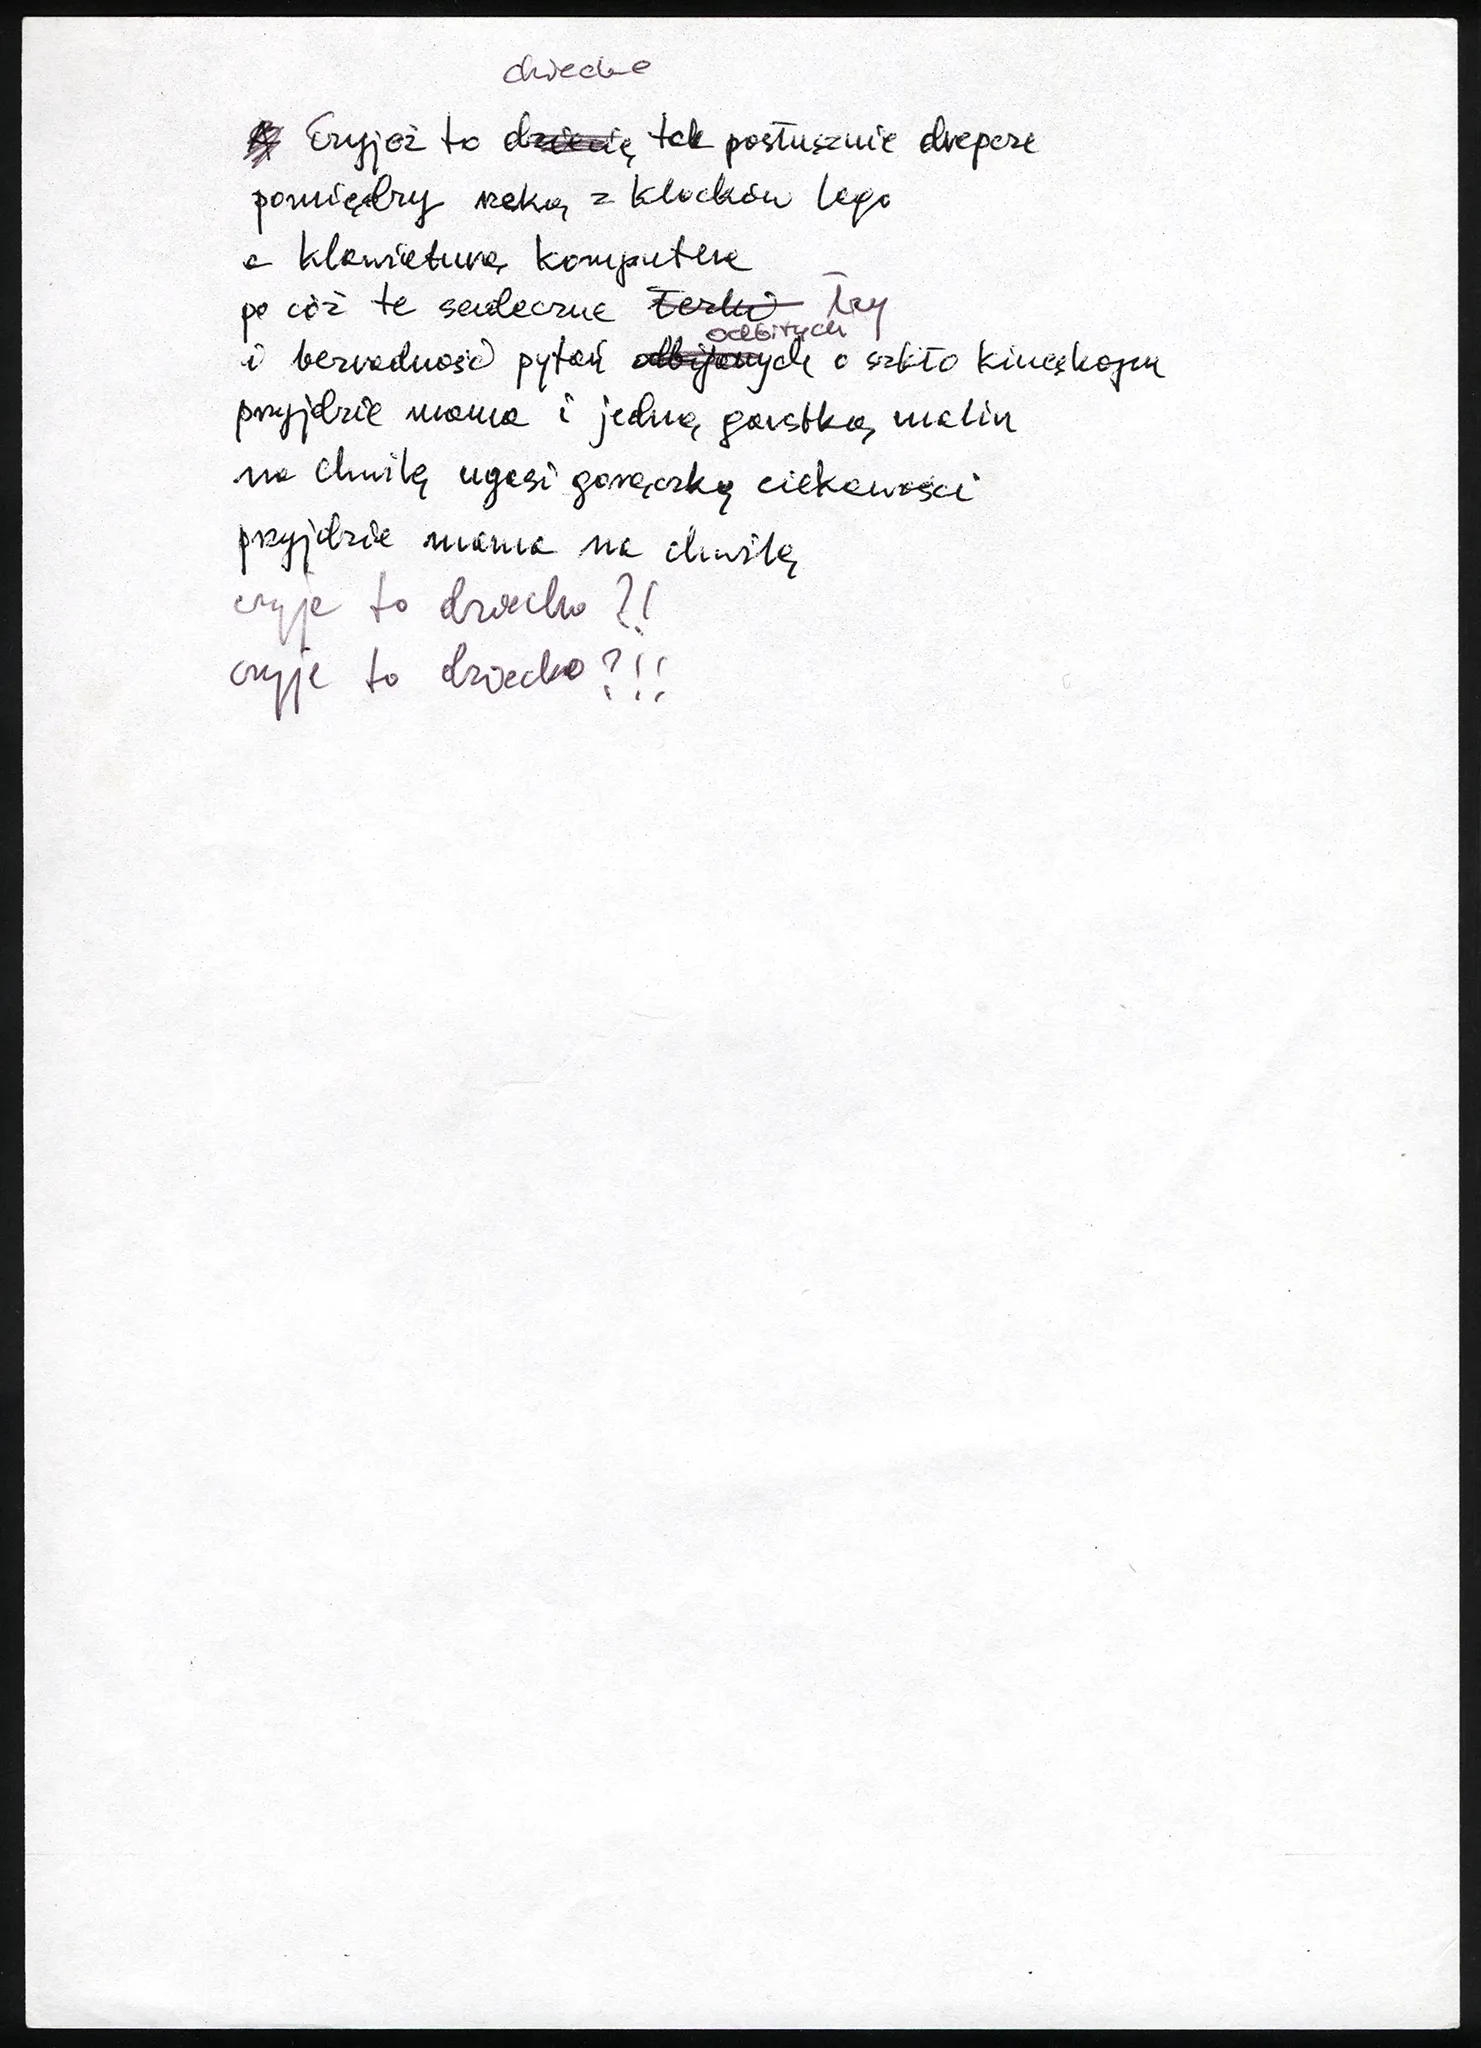 dziecko
Czyjeż to dziecię tak posłusznie drepcze
pomiędzy rzeką z klocków lego
a klawiaturą komputera
po cóż te serdeczne łezki łzy
odbitych
i bezradność pytań odbijanych o szkło kineskopu
przyjdzie mama i jedną garstką malin
na chwilę ugasi gorączkę ciekawości
przyjdzie mama na chwilę
czyje to dziecko ?!
czyje to dziecko ?!!